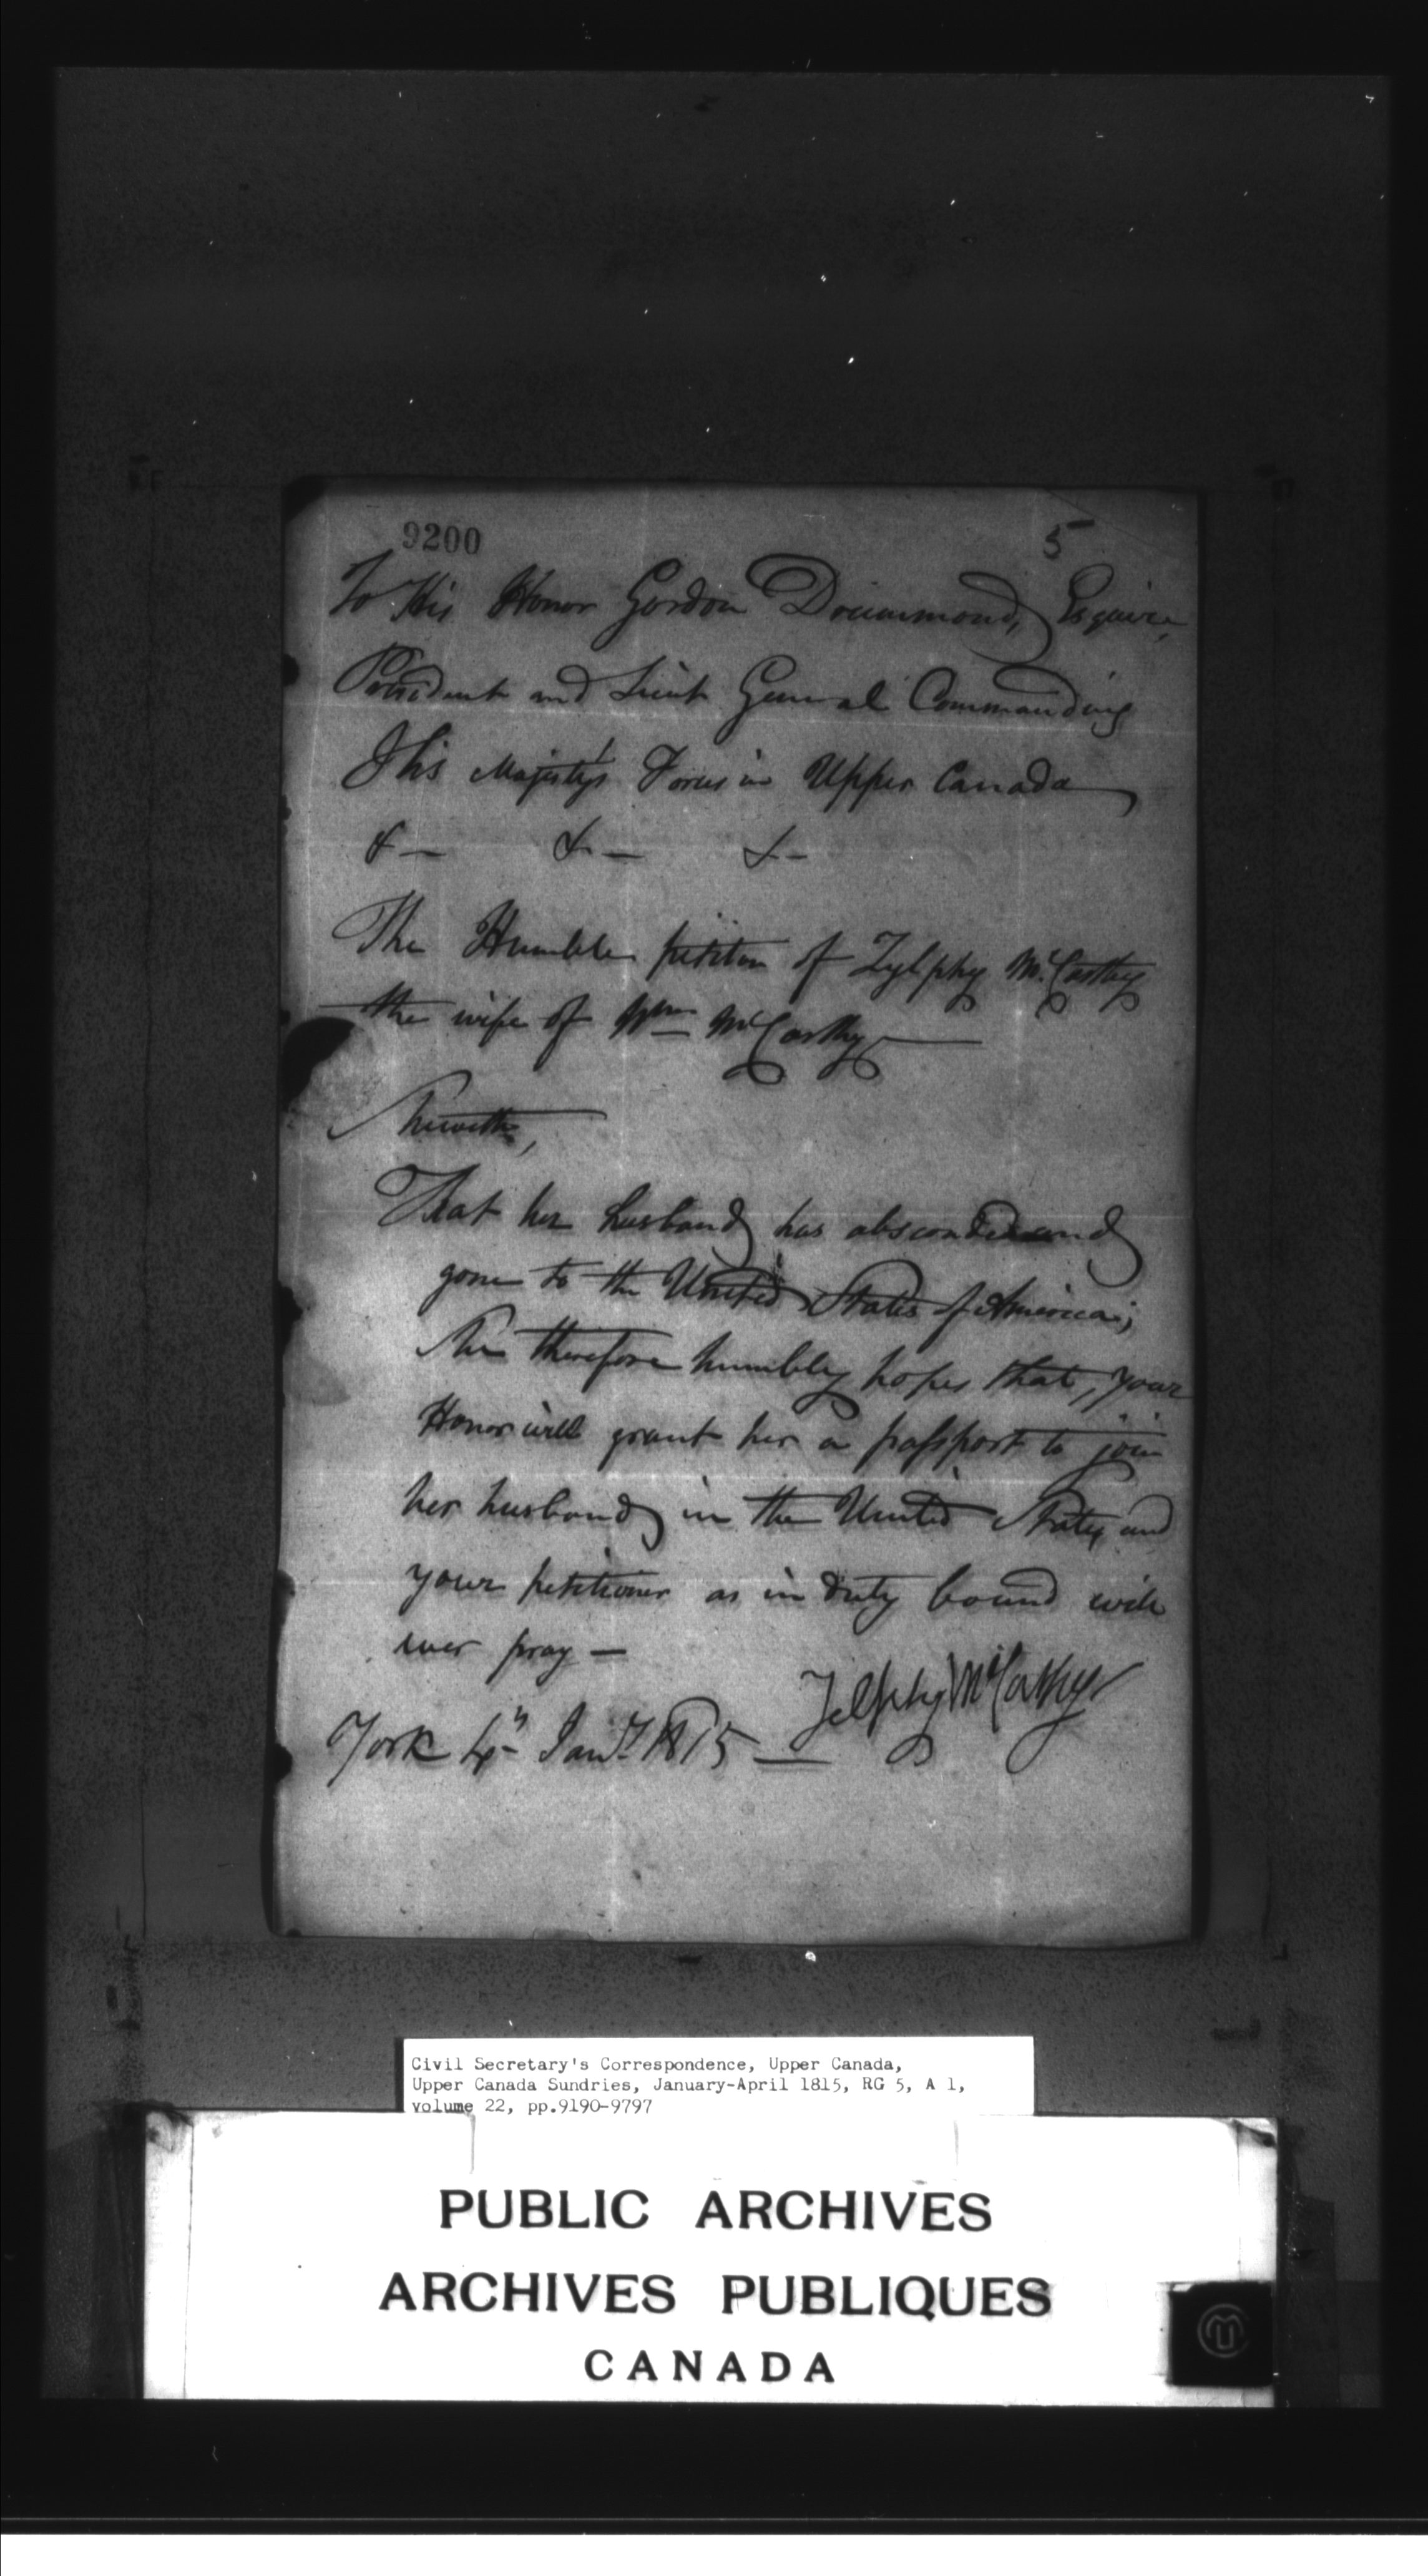 9200
5
To His Honor Gordon Drummond, Esquire,
President and Lieut General Commanding
His Majesty's Forces in Upper Canada
&— &— &—
The Humble petition of Zylphy McCarthy
the wife of Wm McCarthy
Sheweth,
That her husband has absconded and
gone to the United States of America;
She therefore humbly hopes that, your
Honor will grant her a passport to join
her husband in the United States, and
your petitioner as in duty bound will
ever pray —
Zelphy McCarthy
York 4th Jany 1815 —
Civil Secretary's Correspondence, Upper Canada,
Upper Canada Sundries, January-April 1815, RG 5, A 1,
volume 22, pp.9190-9797
PUBLIC ARCHIVES
ARCHIVES PUBLIQUES
CANADA